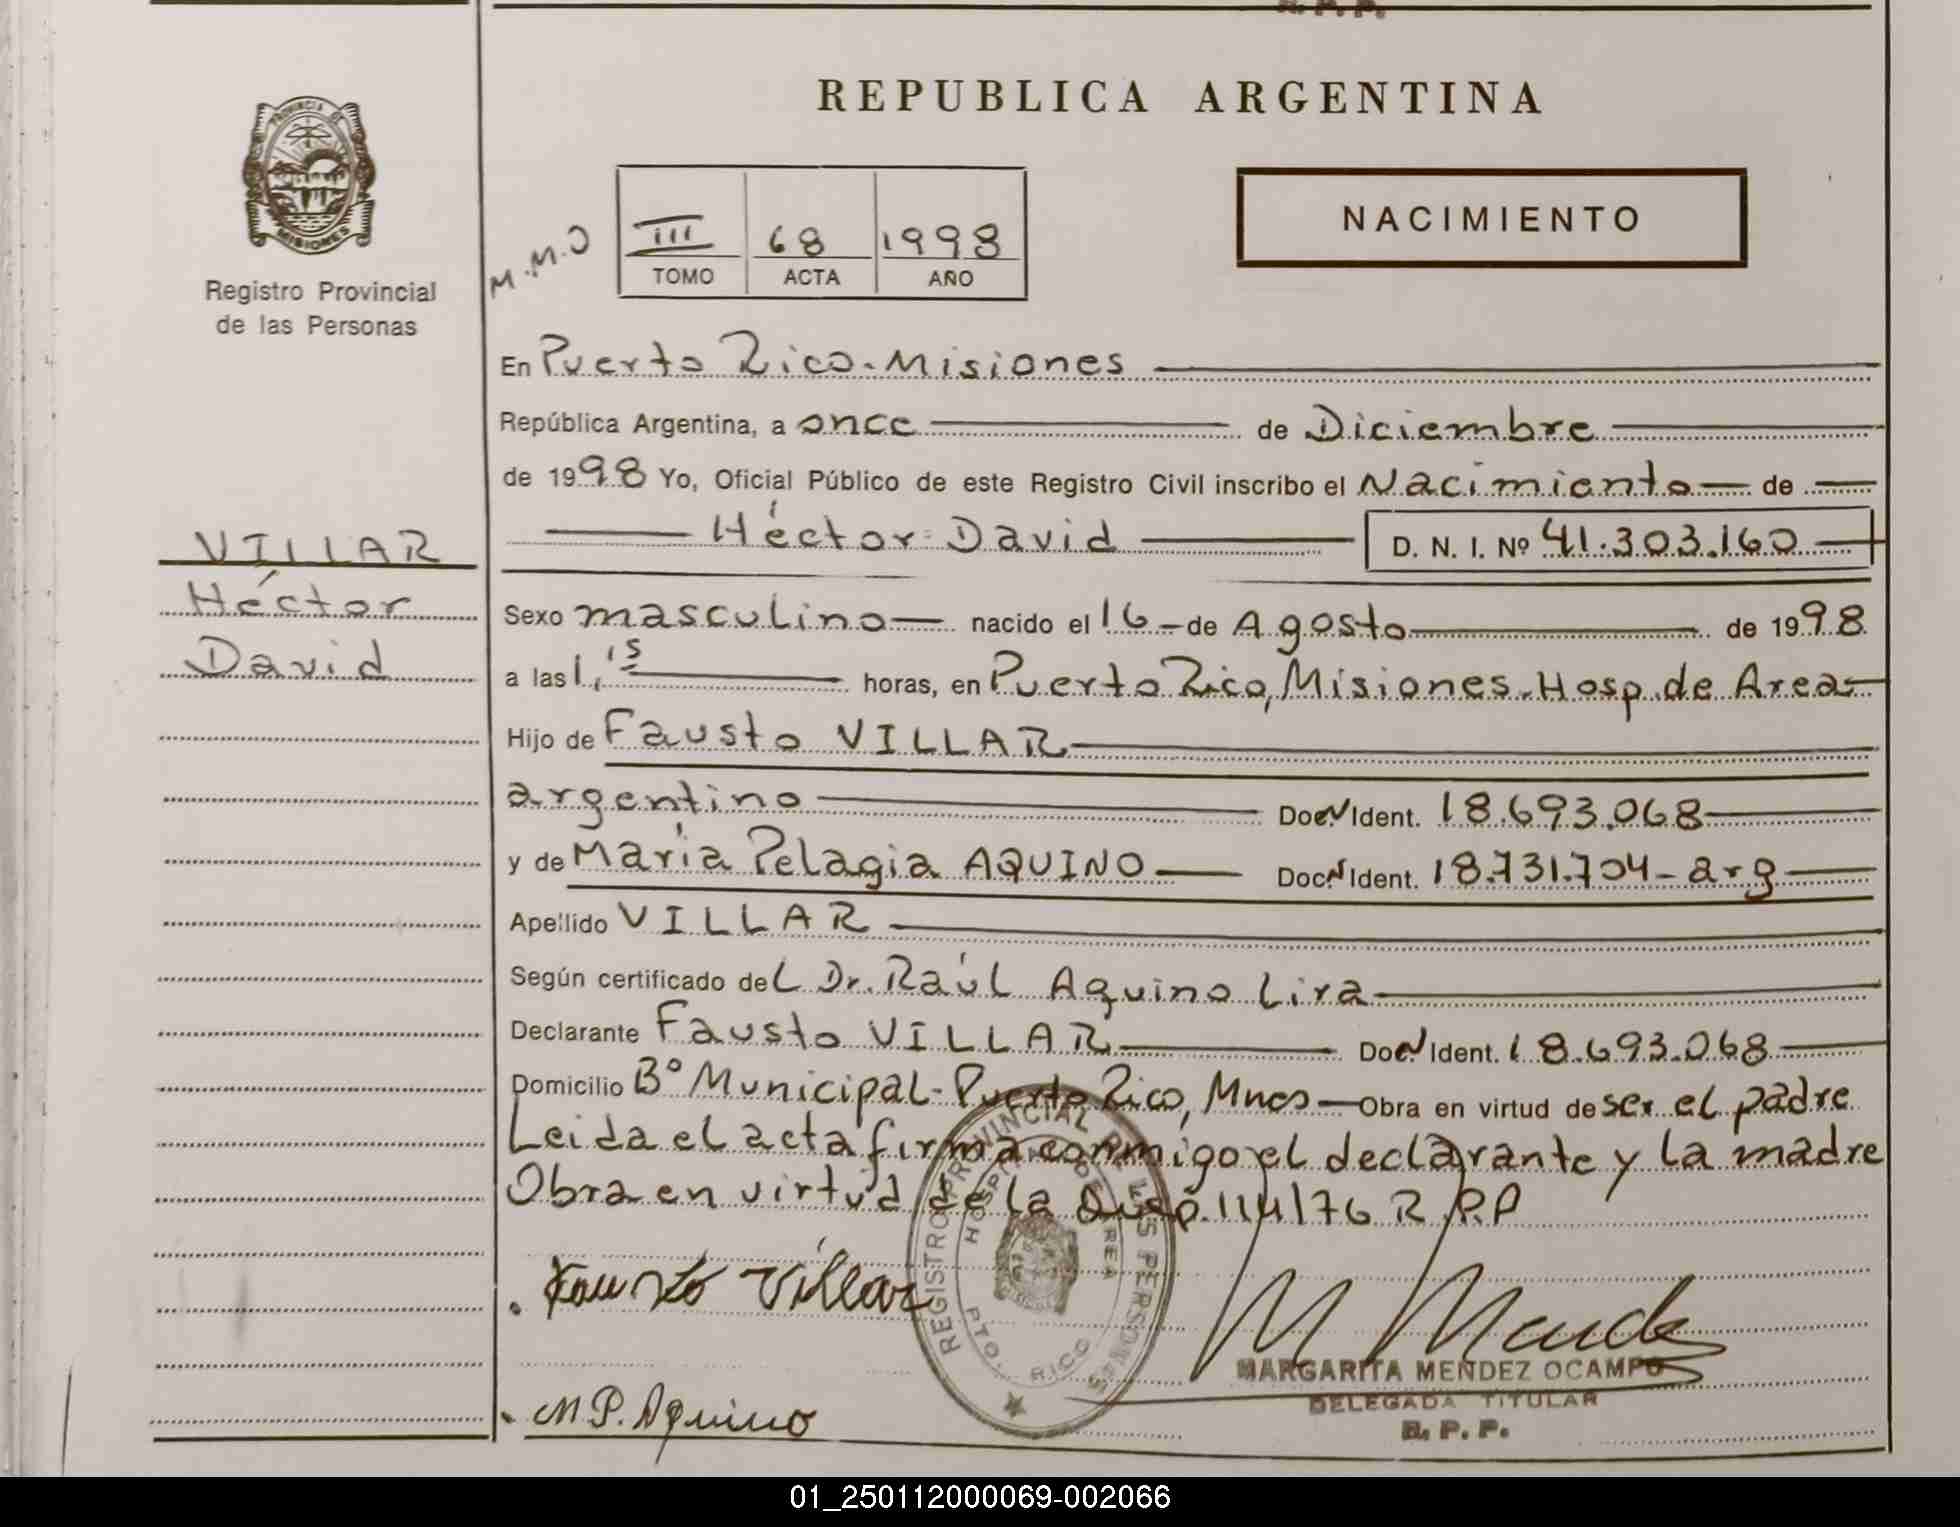 R. P. P.
REPUBLICA ARGENTINA
PROVINCIA DE
MISIONES
Registro Provincial
de las Personas
NACIMIENTO
M.M.O
III 68 1998
TOMO ACTA AÑO
En Puerto Rico-Misiones
República Argentina, a once de Diciembre
de 1998 Yo, Oficial Público de este Registro Civil inscribo el Nacimiento de
Héctor David D. N. I. Nº 41.303.160
VILLAR
Héctor
David
Sexo masculino nacido el 16 - de Agosto de 1998
a las 1,15 horas, en Puerto Rico, Misiones. Hosp. de Area
Hijo de Fausto VILLAR
argentino Doc.N Ident. 18.693.068
y de María Pelagia AQUINO Doc.N Ident. 18.731.704 - arg
Apellido VILLAR
Según certificado del Dr. Raúl Aquino Lira
Declarante Fausto VILLAR Doc.N Ident. 18.693.068
Domicilio Bº Municipal - Puerto Rico, Mnes Obra en virtud de ser el padre
Leida el acta firma conmigo el declarante y la madre
Obra en virtud de la Disp. 114/76 R.P.P
REGISTRO PROVINCIAL DE LAS PERSONAS
HOSPITAL DE AREA
PTO. RICO
Fausto Villar
M Mendez
MARGARITA MENDEZ OCAMPO
DELEGADA TITULAR
R. P. P.
M P. Aquino
01_250112000069-002066